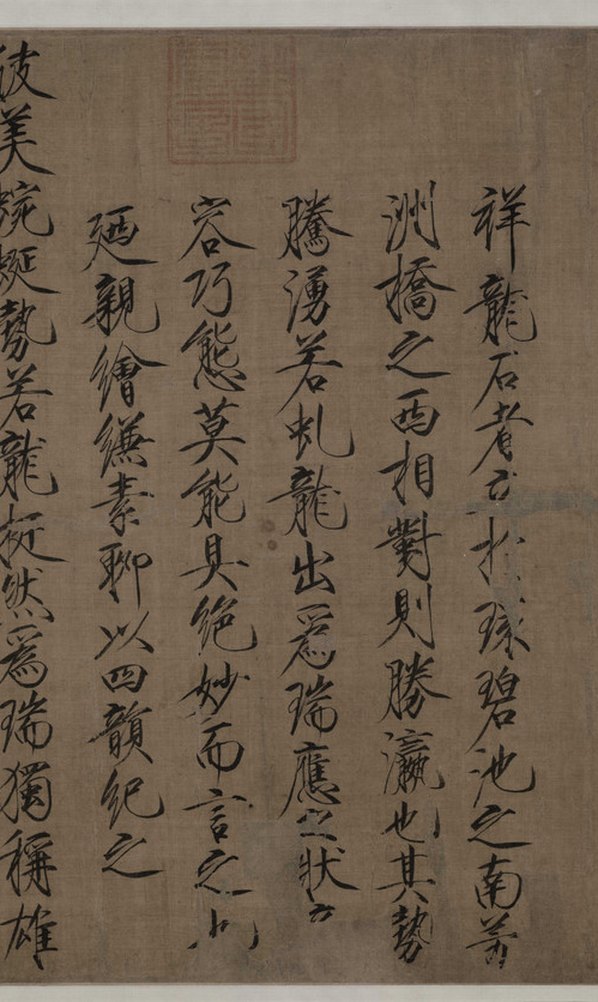 祥龍石者於環碧池之南芳
洲橋之西相對則勝瀛也其勢
騰湧若虬龍出爲瑞應之狀
容巧態莫能具絶妙而言之也
廼親繪縑素聊以四韻紀之
彼美蜿蜒勢若龍挺然爲瑞獨稱雄